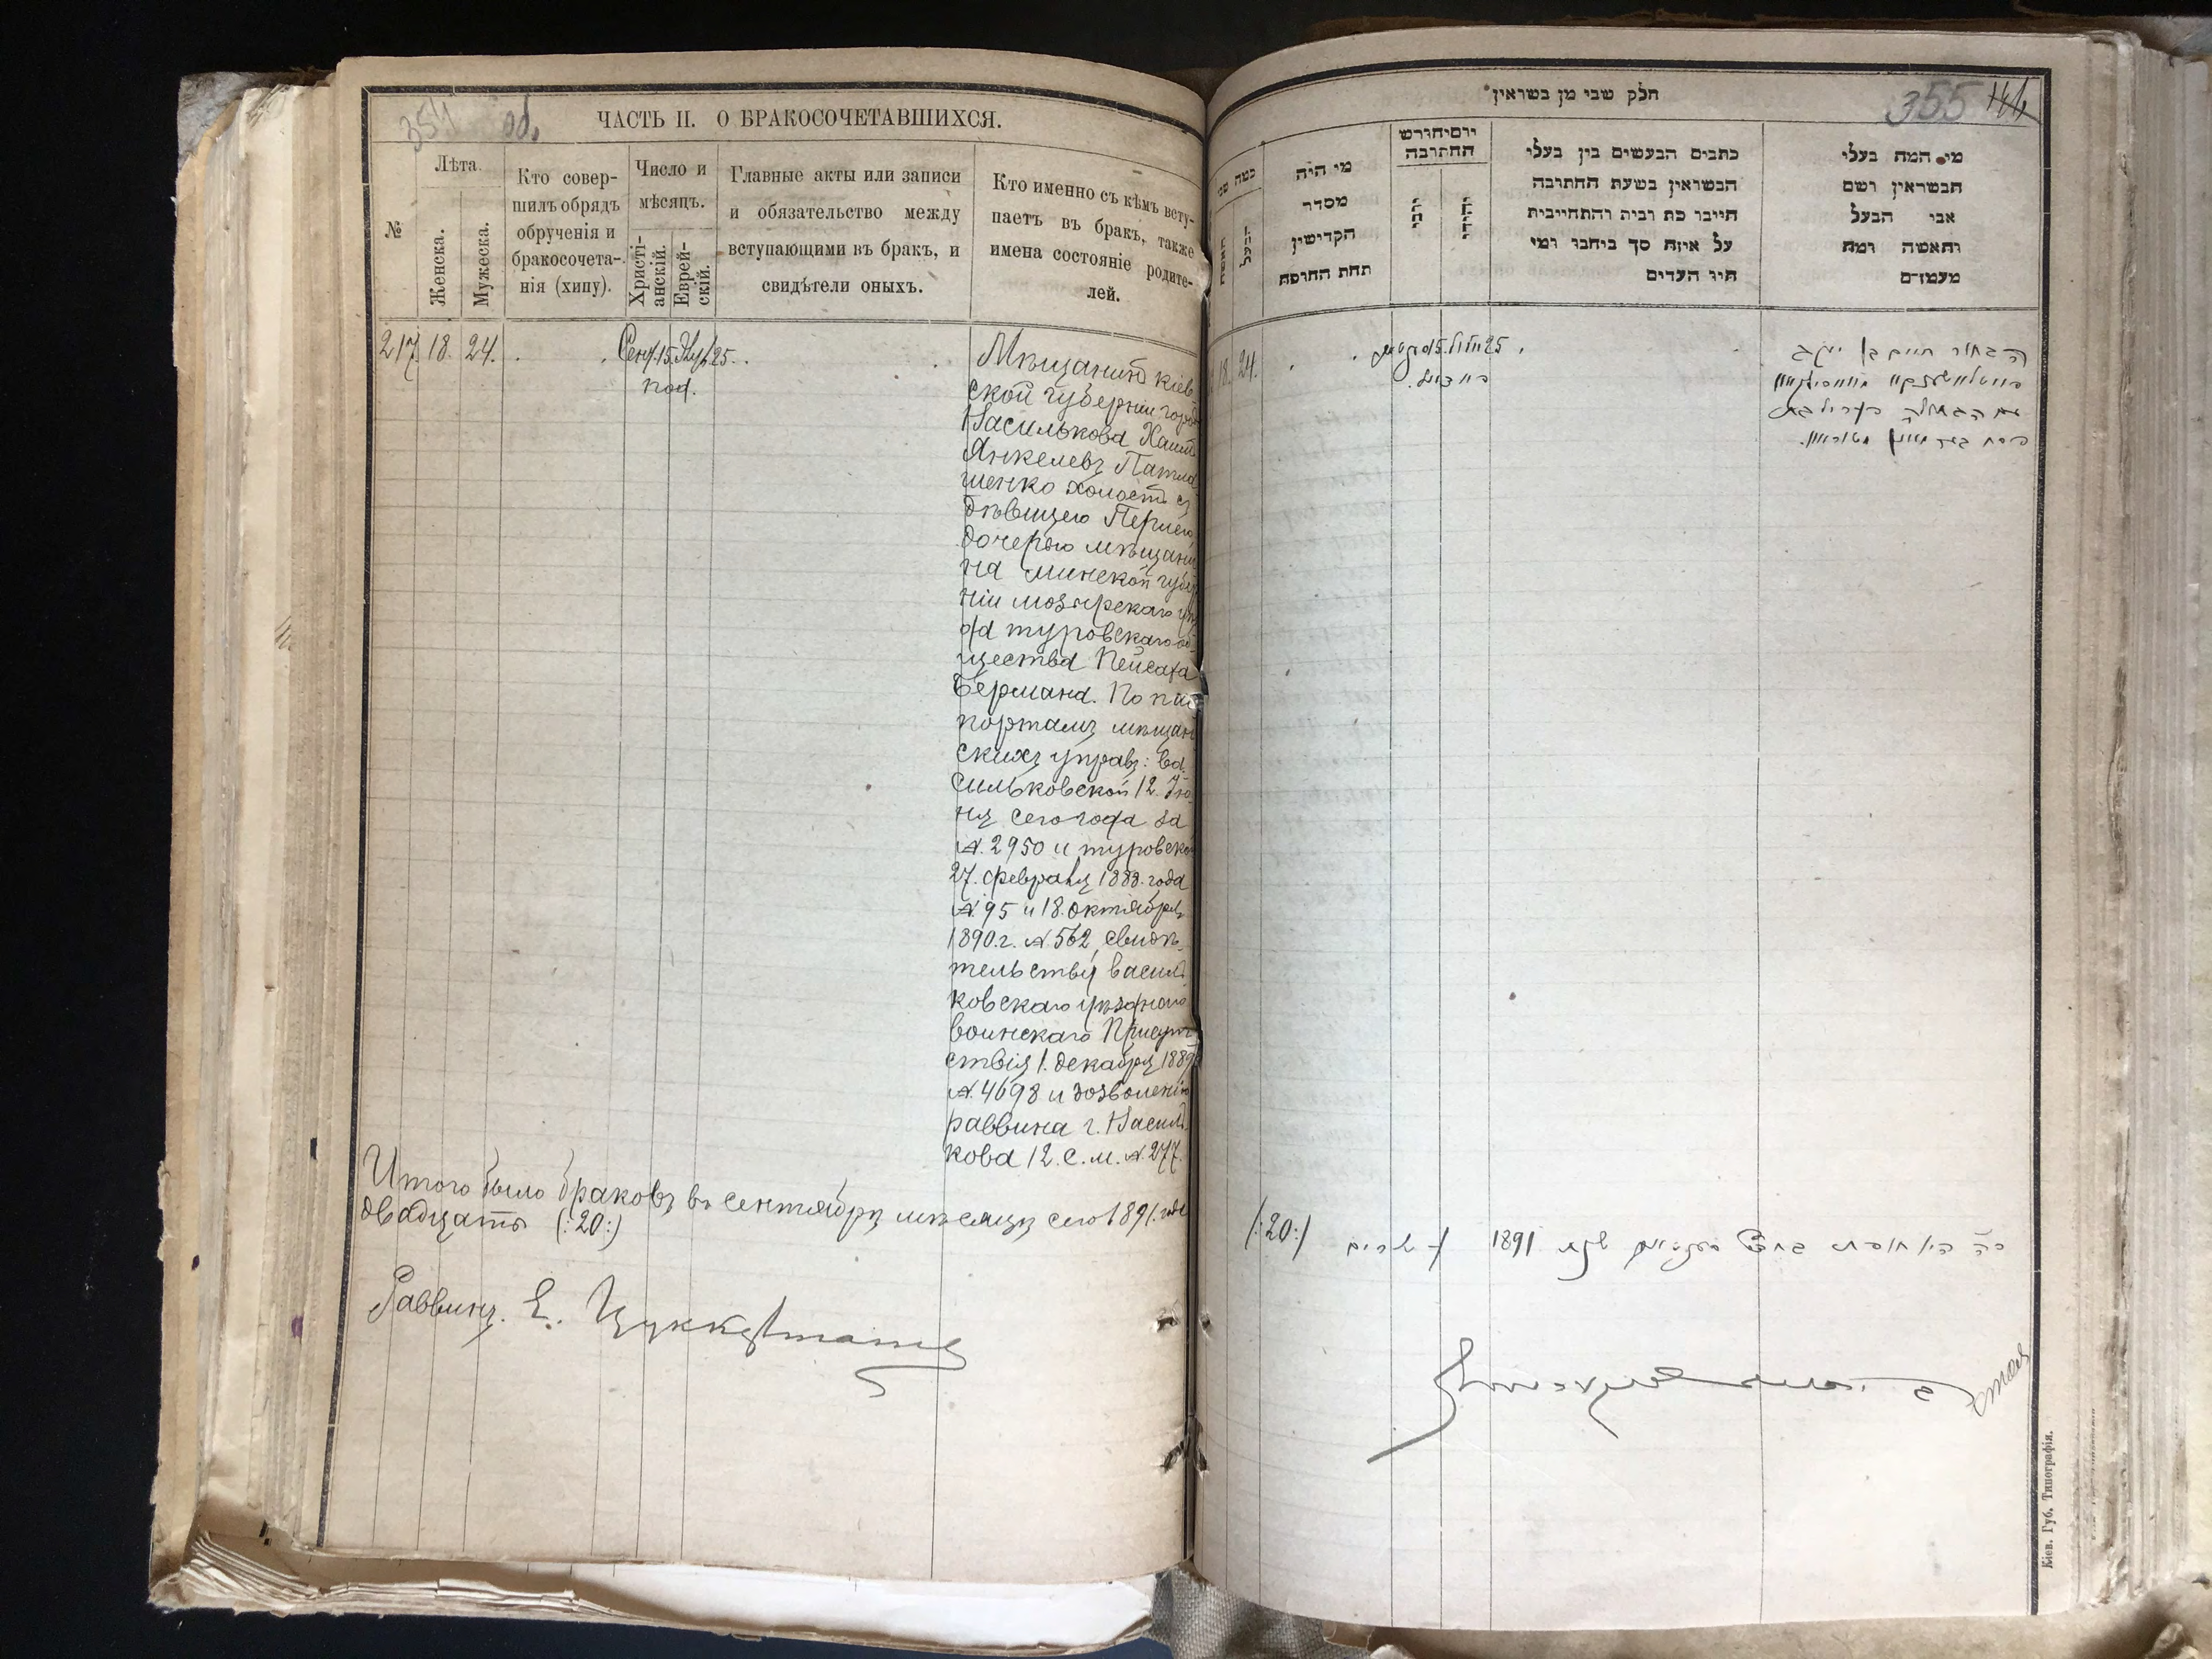 354 об.
ЧАСТЬ II. О БРАКОСОЧЕТАВШИХСЯ.
№
Лѣта.
Женска.
Мужеска.
Кто совер-
шилъ обрядъ
обрученія и
бракосочета-
нія (хипу).
Число и
мѣсяцъ.
Христі-
анскій.
Еврей-
скій.
Главные акты или записи
и обязательство между
вступающими въ бракъ, и
свидѣтели оныхъ.
Кто именно съ кѣмъ всту-
паетъ въ бракъ, также
имена состояніе родите-
лей.
217 18. 24. Сент. 15. 25.
под.
Мѣщанинъ кіев-
ской губерніи города
Василькова Хаимъ
Янкелевъ Патла
шенко холостъ съ
дѣвицею Перлею,
дочерью мѣщани
на минской губер
ніи мозырскаго уѣ
зда туровскаго об-
щества Пейсаха
Бермана. По пас
портамъ мѣщан
скихъ управъ: ва-
сильковской 12. Ію
ня сего года за
№. 2950 и туровской
27. февраля 1888. года
№. 95 и 18. октября
1890. г. №. 562, свидѣ-
тельству василь
ковскаго уѣзднаго
воинскаго Присут
ствія 1. декабря 1889
№. 4698 и дозволенію
раввина г. Василь
кова 12. с. м. №. 277.
Итого было браковъ въ сентябрѣ мѣсяцѣ сего 1891. года
двадцать (:20:)
Раввинъ. Е. Цуккерманъ
355
חלק שבי מן בשראין
מי המה בעלי
הבשראין ושם
אבי הבעל
והאשה ומה
מעמדם
כתבים הבעשים בין בעלי
הבשראין בשעת החתובה
חייבו כת רביה והתחייבית
על איזה סך ביחבו ומי
היו העדים
יום יחורש
החתובה
מי היה
מסדר
הקדישין
תחת החופה
כמה שני
הבעל
האשה
18. 24.
25 אלול 15
הבחור חיים בן יעקב
עם הבתולה פערל בת
פסח בערמאן
(:20:) 1891
Кіев. Губ. Типографія.